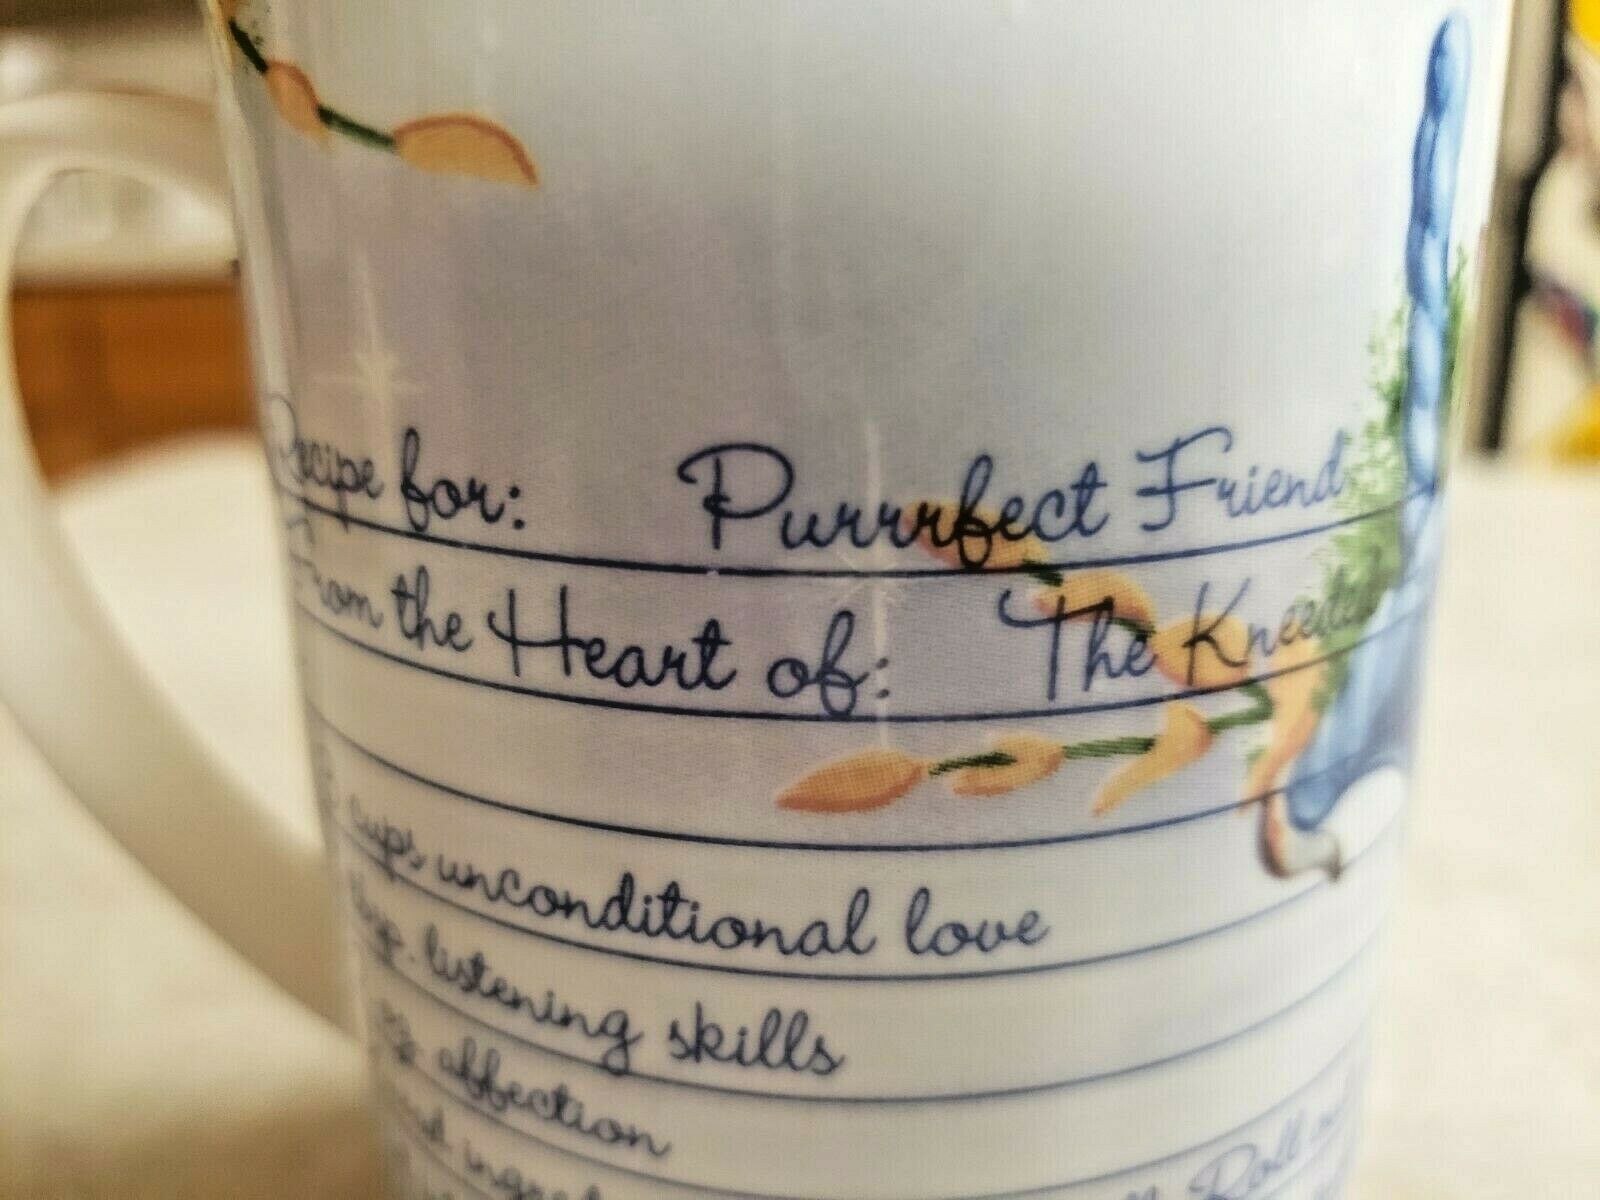 Recipe for: Purrrfect Friend
From the Heart of: The
cups unconditional love
listening skills
affection
Roll